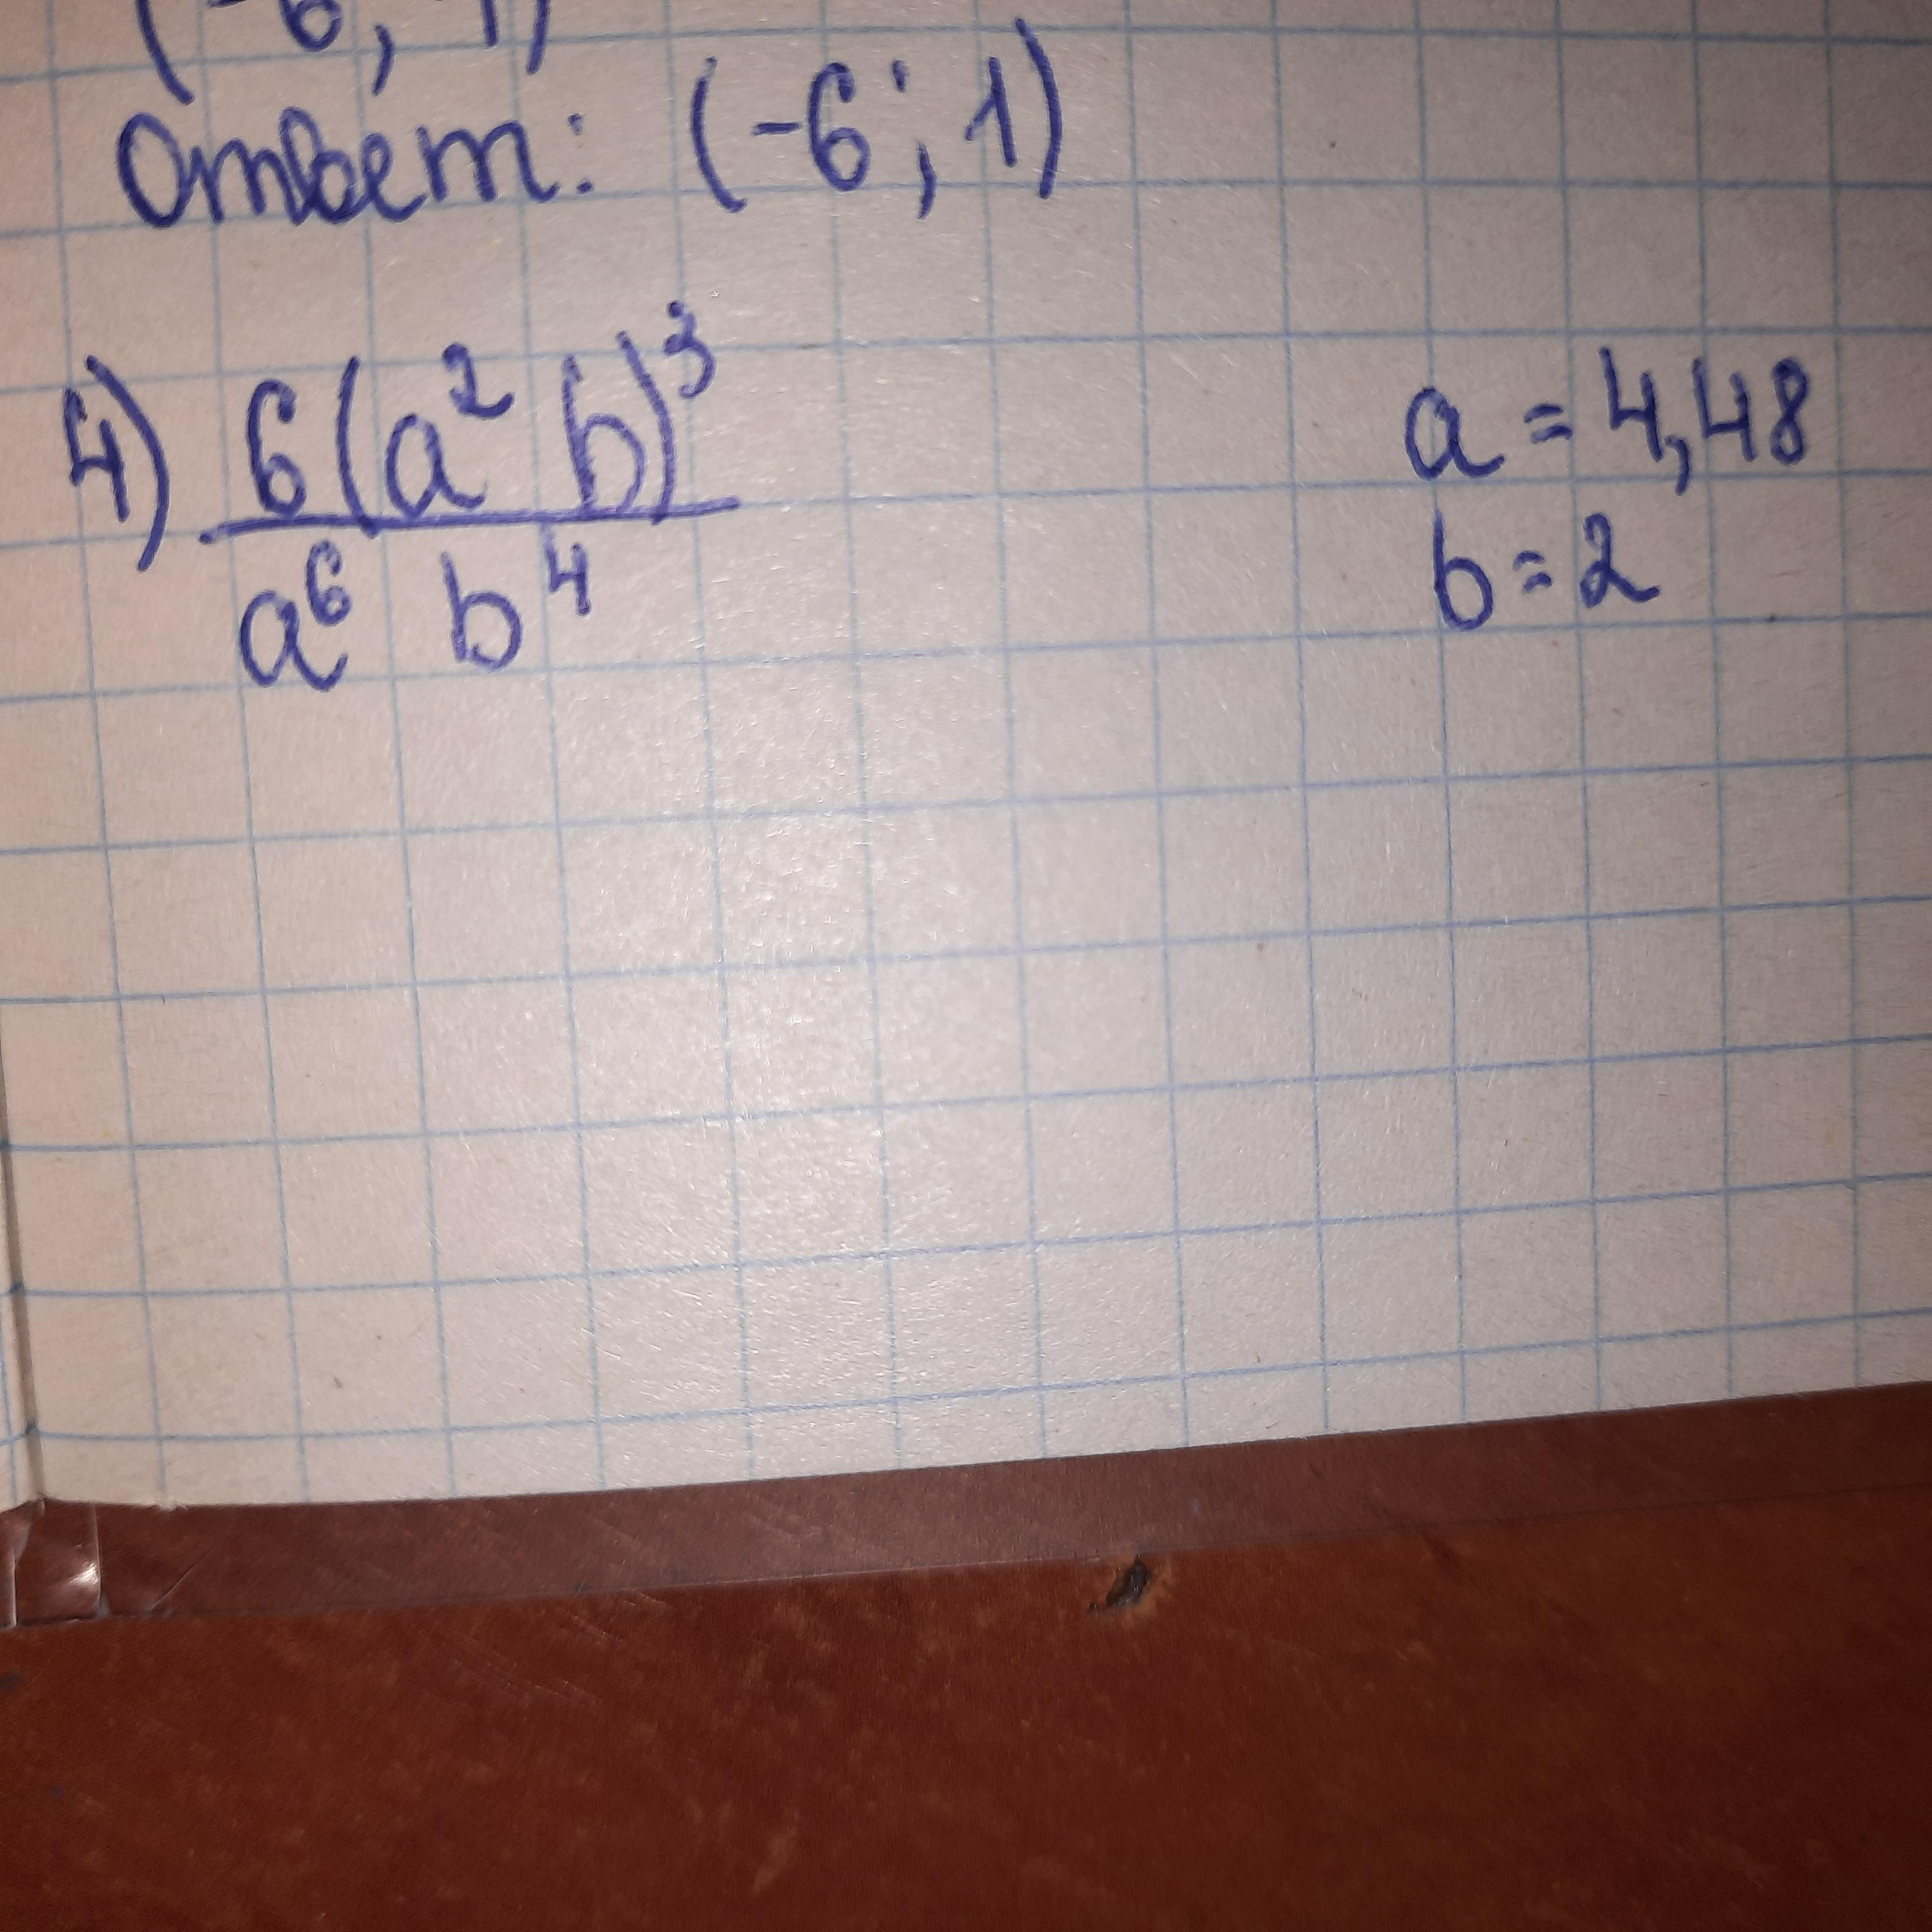 (-6; 1)
Ответ: (-6; 1)
4) 6(a² b)³
a⁶ b⁴
a = 4,48
b = 2